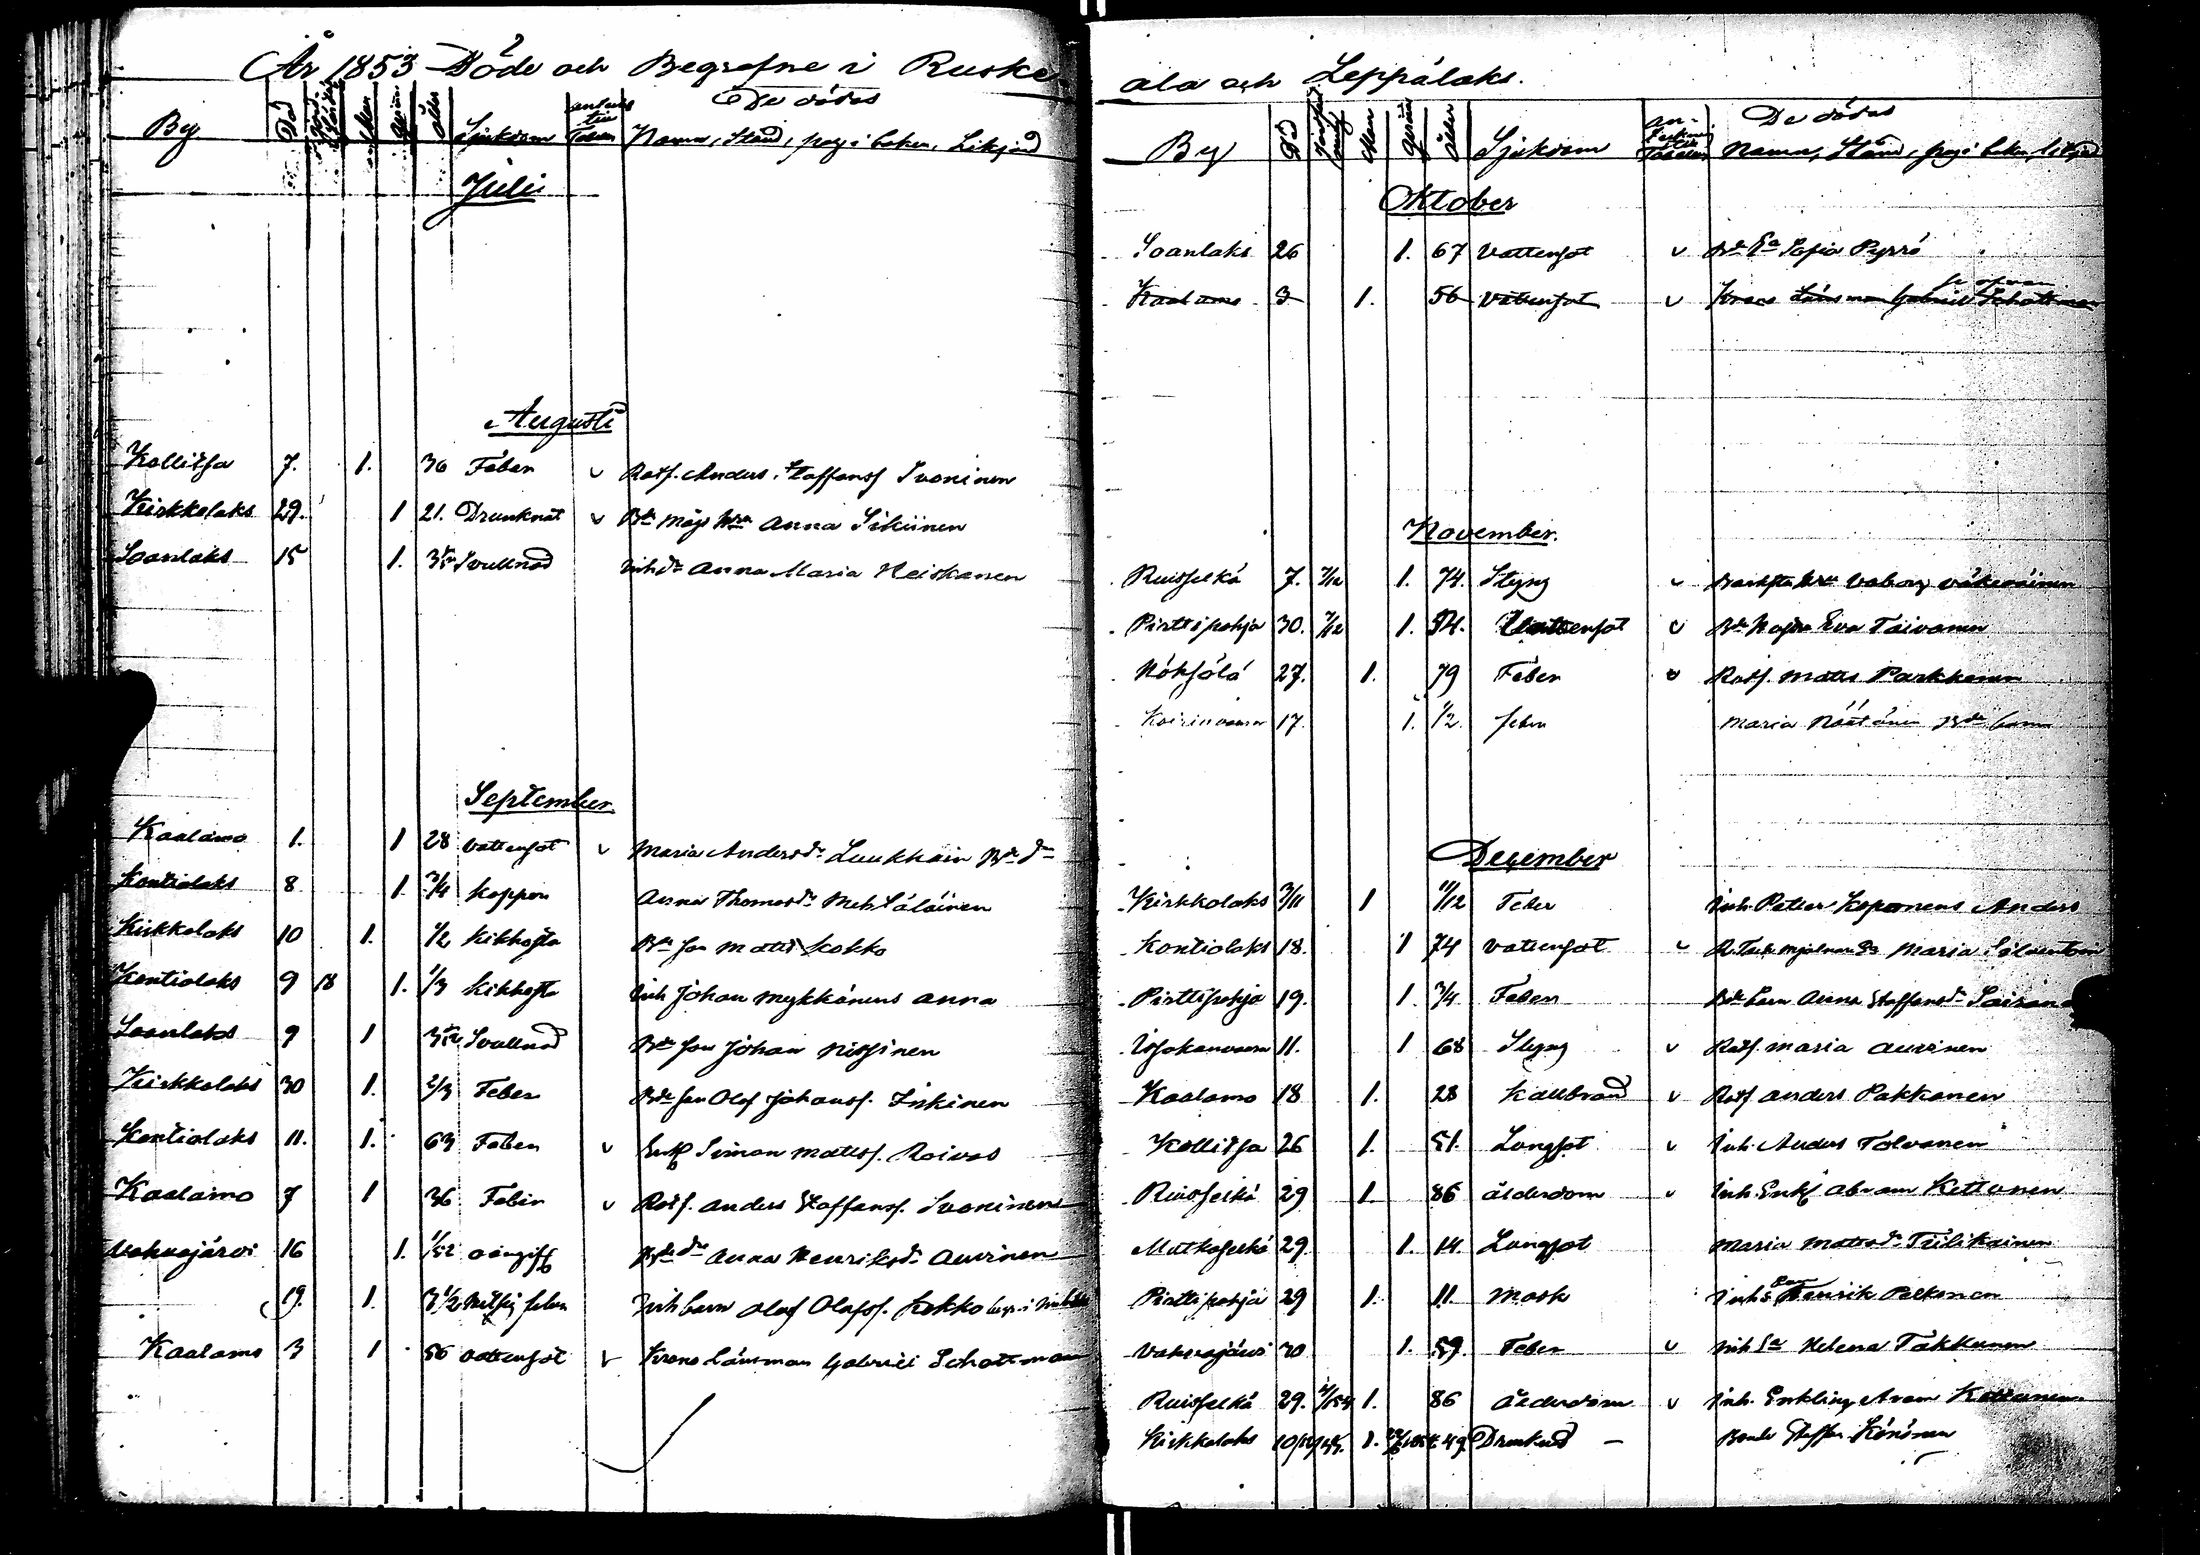 År 1853 Döde och Begrafne i Ruske
By Död Män Ålder Sjukdom Namn, Stånd, pag i boken, Likjord
De dödas
Juli
Augusti
Kollitsa 7. 1. 36 Feber v Rotf. Anders Staffansf Ivoninen
Kirkkolaks 29. 1 21. Drunknat v Bde mågs hru Anna Sikiinen
Soanlaks 15 1. Svullnad Inh dr Anna Maria Heiskanen
September
Kaalamo 1. 1 28 vattensot v Maria Andersdr Luukkain Bde dr
Kontiolaks 8 1. 3/4 koppor Anna Thomasdr Mehtäläinen
Kirkkolaks 10 1. 1/2 kikhosta Bde son Matts Kokko
Kontiolaks 9 18 1. 1/3 kikhosta Inh Johan Mykkänens Anna
Soanlaks 9 1 Svullnad Bde son Johan Nissinen
Kirkkolaks 30 1. 2/3 Feber Bde son Olof Johansf. Inkinen
Kontiolaks 11. 1. 63 Feber v Enkl Simon Mattsf. Roivas
Kaalamo 7 1 36 Feber v Rotf. Anders Staffansf. Ivoninen
Vahvajärvi 16 1. 1/52 oangiff Bde dr Anna Henriksdr Auvinen
19. 1. 3 1/2 feber Inh barn Olof Olofsf. Kokko
Kaalamo 3 1 56 vattensot v Krono Länsman Gabriel Schattman
ala och Leppälaks.
By Död Män Ålder Sjukdom De dödas Namn, Stånd, pag i boken, Likjord
Oktober
Soanlaks 26 1. 67 Vattensot v Bde Ea Sofia Pyrrö
Kaalamo 3 1. 56 Vattensot v Krono Länsman Gabriel Schattman
November.
Ruisselkä 7. 7/12 1. 74. Styng v Valborg Väkeväinen
Pirttipohja 30. 7/12 1. 54. Vattensot v Bde Eva Taivanen
Höksölä 27. 1. 79 Feber v Rotf. Matts Parkkonen
Koirinvaara 17. 1. 1/2. feber Maria Näätänen Bde barn
December
Kirkkolaks 3/11 1 11/12 Feber Inh. Petter Koponens Anders
Kontiolaks 18. 1 74 vattensot v Maria Silventoin
Pirttipohja 19. 1. 3/4. Feber Bde barn Anna Staffansdr Sairanen
Issakanvaara 11. 1 68 Styng v Rotf. Maria Auvinen
Kaalamo 18 1. 28 Kallbrand v Rotf Anders Pakkanen
Kollitsa 26 1. 51. Lungsot v Inh. Anders Tolvanen
Ruisselkä 29 1. 86 ålderdom v Inh. Enkl Abram Kettunen
Matkaselkä 29. 1. 14. Lungsot Maria Mattsdr Tiilikainen
Pirttipohja 29 1. 11. Mask Inhs son Henrik Pelkonen
Vahvajärvi 30 1. 59. Feber v Inh Ea Helena Takkunen
Ruisselkä 29. 1. 86 Ålderdom v Inh. Enkling Aram Kettunen
Kirkkolaks 1. 49. Drunknad – Bonde Staffan Könönen